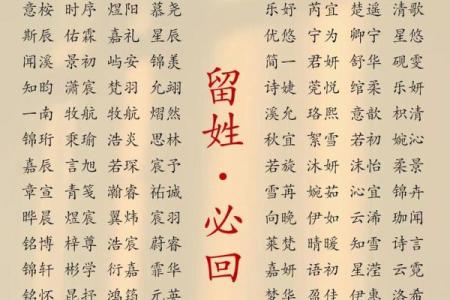 意桉 时序 煜阳 慕尧
斯辰 佑霖 嘉礼 星辰
闻溪 景初 屿安 锦羡
知昀 潇宸 梵羽 允翊
一南 牧航 牧航 熠然
锦珩 秉瑜 浩炎 思林
嘉辰 言旭 若琛 宸予
章宣 青笺 瀚睿 祐诚
晔晨 煜宸 翼炜 宸羽
铭博 梓尊 浩宸 蔚睿
锦轩 彬学 衍嘉 霏华
留姓·必回
乐妤 芮宜 楚遥 清歌
优悠 宁为 卿宁 星悠
简一 君妍 舒华 砚雯
诗婕 莞悦 绾柔 乐妍
溪允 珞熙 意歆 枳清
秋宜 絮雪 若初 婉沁
若旋 沐妍 沁妍 柔景
雪苒 婉茹 沁宜 锦佳
向晚 伊如 云浠 卉闻
莱梵 晴暖 知雪 诗言
嘉妍 伊初 星滢 云霓